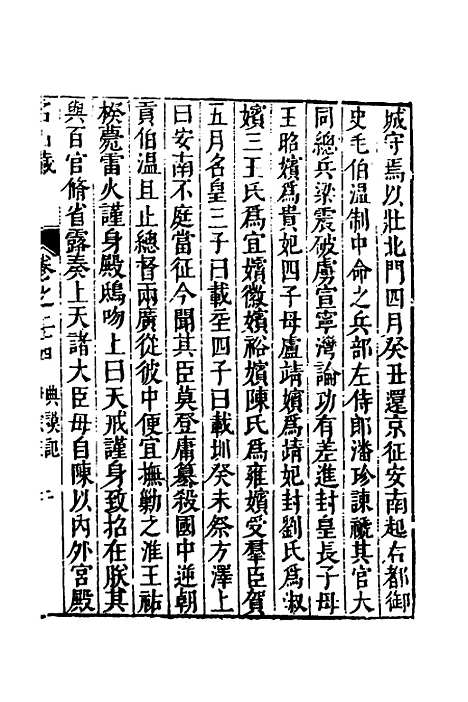 城守焉以壯北門四月癸丑還京征安南起右都御
史毛伯溫制中命之兵部左侍郎潘珍諫禠其官大
同總兵梁震破虜宣寧灣論功有差進封皇長子母
王昭嬪爲貴妃四子母盧靖嬪爲靖妃封劉氏爲淑
嬪三王氏爲宜嬪徽嬪裕嬪陳氏爲雍嬪受羣臣賀
五月名皇三子曰載坖四子曰載圳癸未祭方澤上
曰安南不庭當征今聞其臣莫登庸篡殺國中逆朝
貢伯溫且止總督兩廣從彼中便宜撫勦之淮王祐
楑薨雷火謹身殿鴟吻上曰天戒謹身致招在朕其
與百官脩省露奏上天諸大臣毋自陳以內外宮殿
名山藏 卷之二十四 典謨記